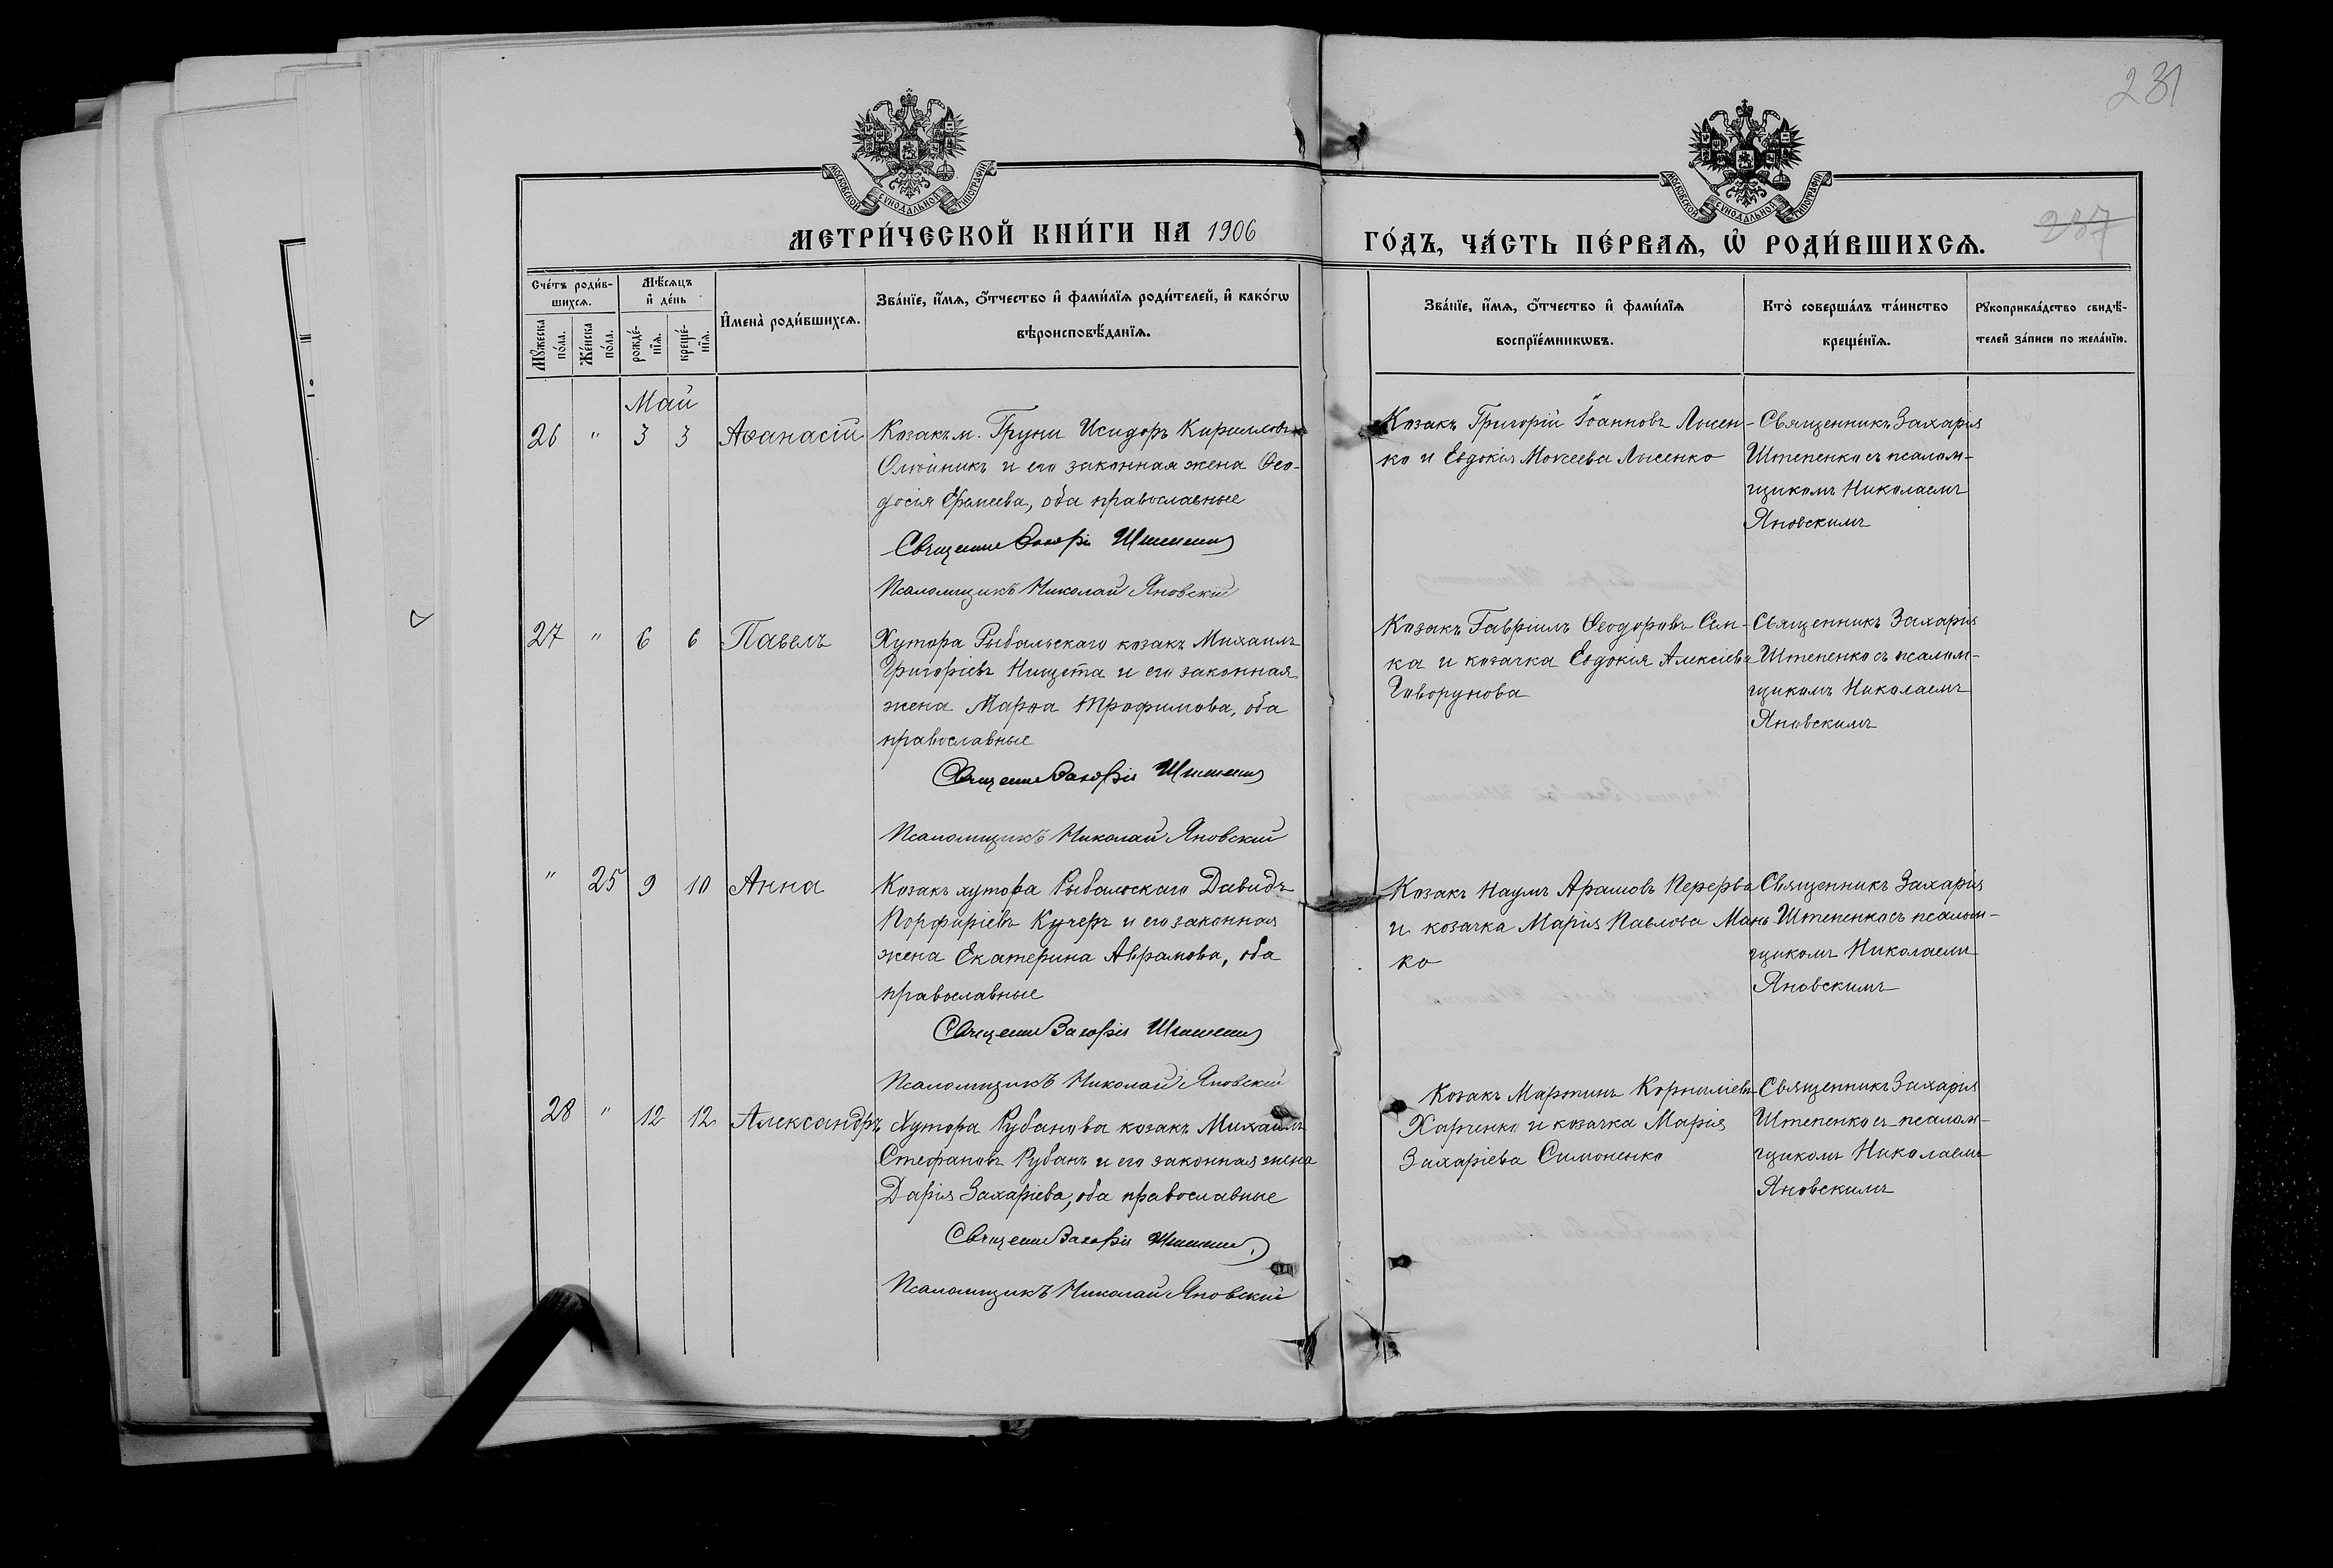 231
МОСКОВСКОЙ СѴНОДАЛЬНОЙ ТИПОГРАФІИ
МОСКОВСКОЙ СѴНОДАЛЬНОЙ ТИПОГРАФІИ
МЕТРИ́ЧЕСКОЙ КНИ́ГИ НА 1906
ГО́ДЪ, ЧА́СТЬ ПЕ́РВАѦ, Ѿ РОДИ́ВШИХСѦ.
237
Счéтъ роди́в-
шихсѧ.
Мꙋ́жеска по́ла.
Же́нска по́ла.
Мѣ́сѧцъ
и҆ де́нь
рожде́-
нїѧ.
креще́-
нїѧ.
И҆мена̀ роди́вшихсѧ.
Зва́нїе, и҆́мѧ, ѻ҆́тчество и҆ фами́лїѧ роди́телей, и҆ како́гѡ
вѣроисповѣ́данїѧ.
Зва́нїе, и҆́мѧ, ѻ҆́тчество и҆ фами́лїѧ
воспрїе́мникѡвъ.
Кто̀ соверша́лъ та́инство
креще́нїѧ.
Рꙋкоприкла́дство свидѣ́-
телей за́писи по жела́нїю.
Май
26 " 3 3 Аѳанасій
Козакъ м. Груни Исидоръ Кирилловъ
Олѣйникъ и его законная жена Ѳео-
досія , оба православные
Священникъ Захарія Штепенко
Псаломщикъ Николай Яновскій
Козакъ Григорій Іоанновъ Лысен-
ко и Евдокія Мокеева Лысенко
Священникъ Захарія
Штепенко съ псалом-
щикомъ Николаемъ
Яновскимъ
27 " 6 6 Павелъ
Хутора Рыбальскаго козакъ Михаилъ
Григоріевъ Нищета и его законная
жена Марѳа Трофимова, оба
православные
Священникъ Захарія Штепенко
Псаломщикъ Николай Яновскій
Козакъ Гавріилъ Ѳеодоровъ Сем-
ка и козачка Евдокія Алексіева
Говорунова
Священникъ Захарія
Штепенко съ псалом-
щикомъ Николаемъ
Яновскимъ
" 25 9 10 Анна
Козакъ хутора Рыбальскаго Давидъ
Порфиріевъ Кучеръ и его законная
жена Екатерина Аврамова, оба
православные
Священникъ Захарія Штепенко
Псаломщикъ Николай Яновскій
Козакъ Наумъ Перерва
и козачка Марія Павлова Мань
ко
Священникъ Захарія
Штепенко съ псалом-
щикомъ Николаемъ
Яновскимъ
28 " 12 12 Александръ
Хутора Рубанова козакъ Михаилъ
Стефановъ Рубанъ и его законная жена
Дарія Захаріева, оба православные
Священникъ Захарія Штепенко
Псаломщикъ Николай Яновскій
Козакъ Мартинъ Корниліевъ
Харченко и козачка Марія
Захаріева Симоненко
Священникъ Захарія
Штепенко съ псалом-
щикомъ Николаемъ
Яновскимъ